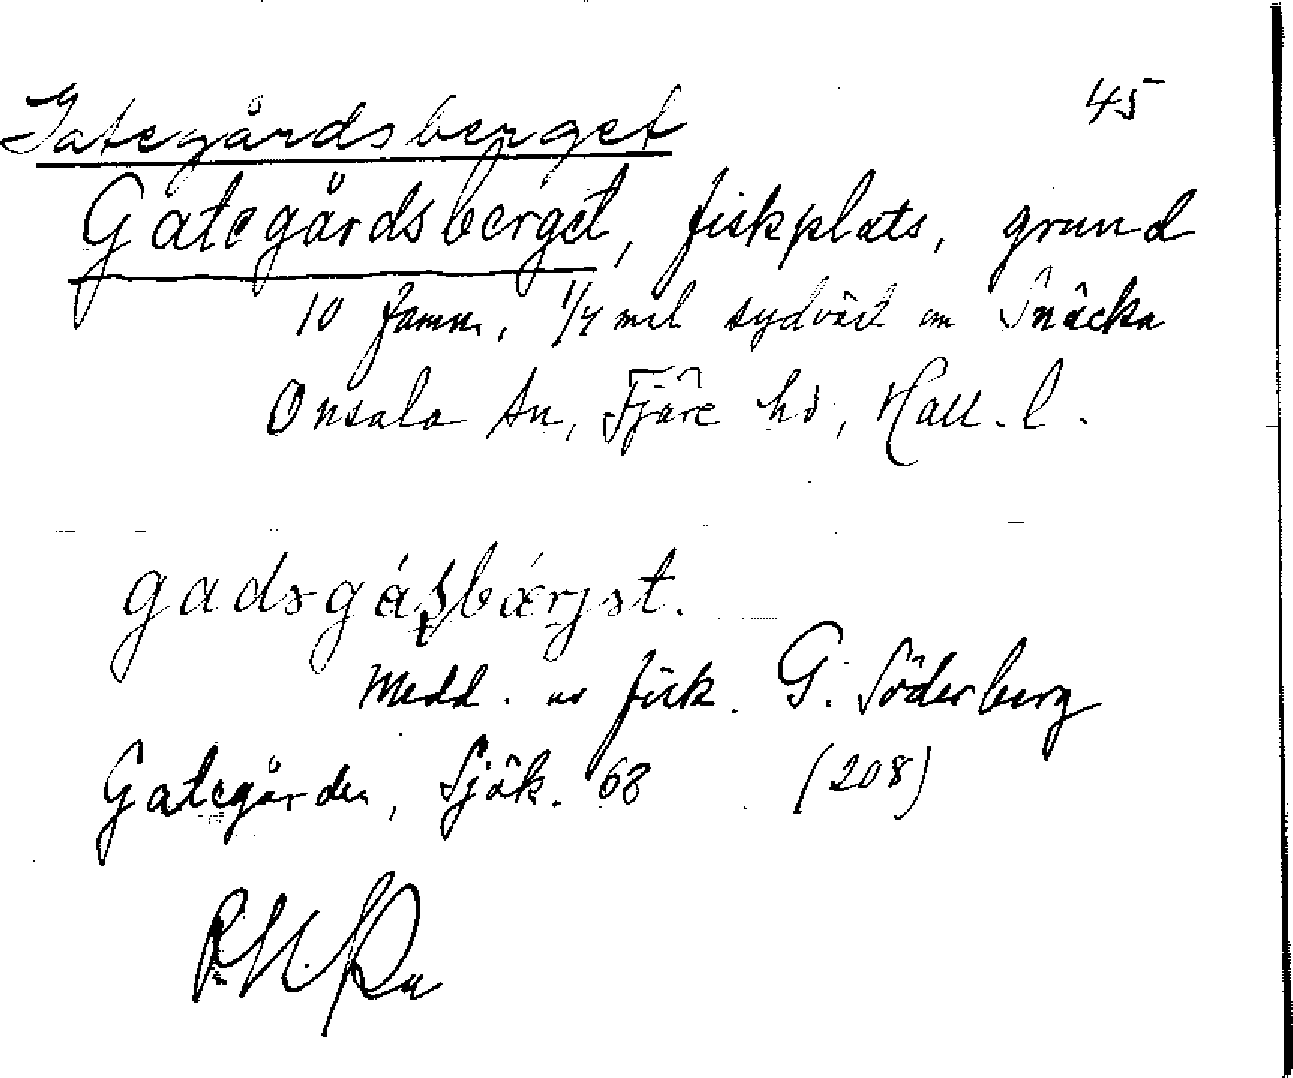 45
Gategårdsberget
Gategårdsberget, fiskplats, grund
10 famn, 1/4 mil sydväst om Snäcka
Onsala sn, Fjäre hd, Hall. l.
Medd. av fisk. G. Söderberg
Gategården, Sjök. 68 (208)